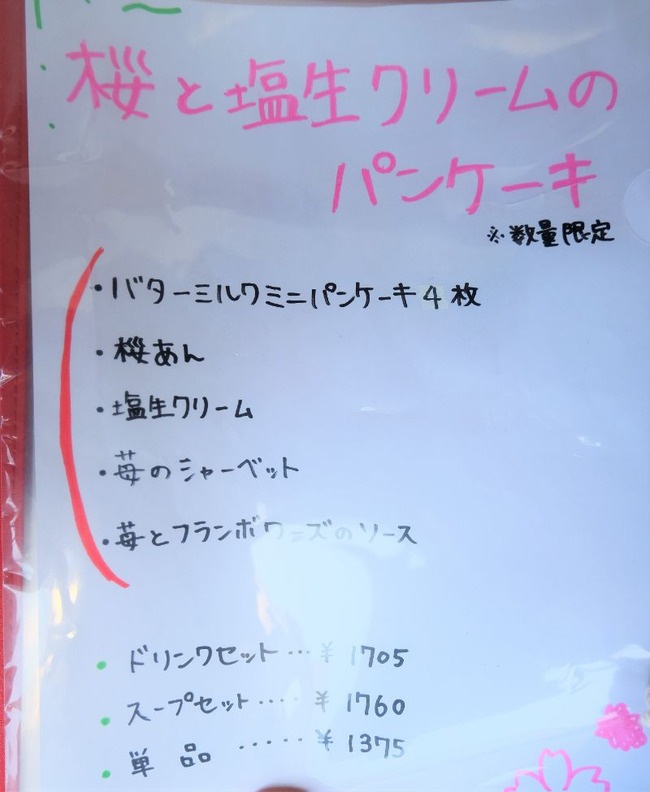 桜と塩生クリームの
パンケーキ
※数量限定
・バターミルクミニパンケーキ4枚
・桜あん
・塩生クリーム
・苺のシャーベット
・苺とフランボワーズのソース
・ドリンクセット…¥1705
・スープセット‥‥¥1760
・単品‥‥‥¥1375